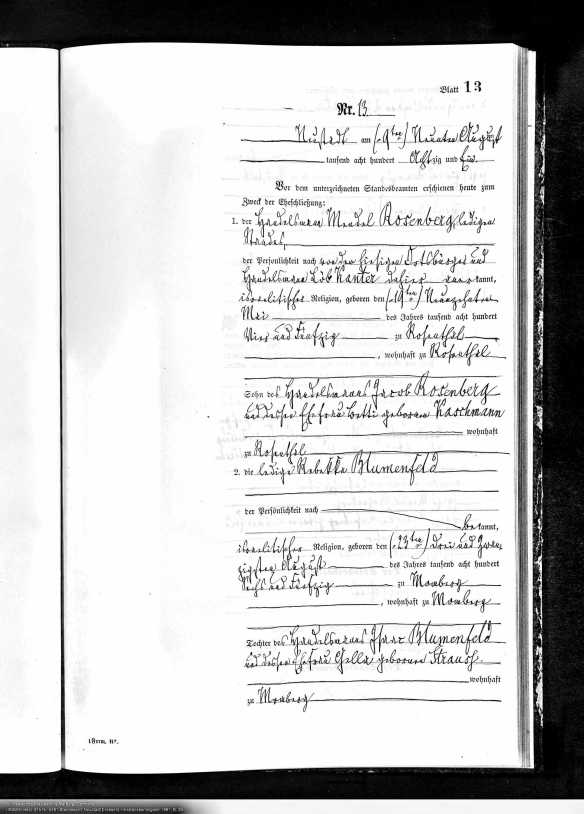 Blatt 13
Nr. 13
Neustadt am (9ten) Neunten August
tausend acht hundert Achtzig und Ein.
Vor dem unterzeichneten Standesbeamten erschienen heute zum
Zweck der Eheschließung:
1. der Handelsmann Mendel Rosenberg, ledigen
Standes,
der Persönlichkeit nach von dem hiesigen Ortsbürger und
Handelsmann Löb Kanter dahier kannt,
israelitischer Religion, geboren den (19ten) Neunzehnten
Mai des Jahres tausend acht hundert
Vier und Fünfzig zu Rosenthal
, wohnhaft zu Rosenthal
Sohn des Handelsmanns Jacob Rosenberg
und dessen Ehefrau Betti geborenen Kaschmann
wohnhaft
zu Rosenthal
2. die ledige Rebekka Blumenfeld
der Persönlichkeit nach
be kannt,
israelitischer Religion, geboren den (23ten) Drei und Zwan-
zigsten August des Jahres tausend acht hundert
Sechs und Fünfzig zu Momberg
, wohnhaft zu Momberg
Tochter des Handelsmanns Isaac Blumenfeld
und dessen Ehefrau Gella geborenen Strauß.
wohnhaft
zu Momberg